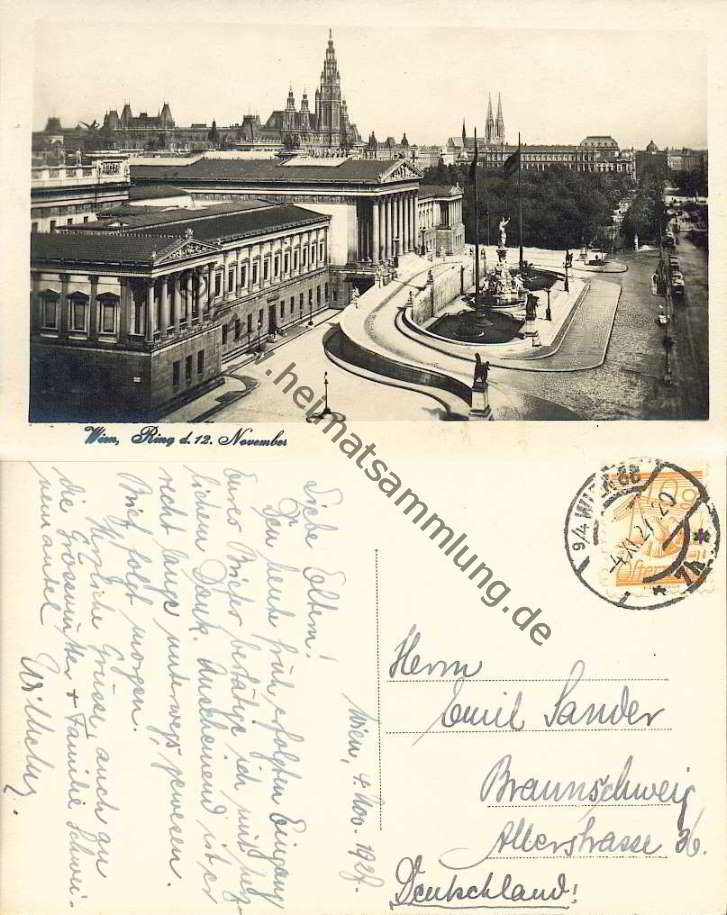 Wien, Ring d. 12. November
heimatsammlung.de
WIEN 66
9/4
-4.XI.27 20
* 7h *
Wien, 4. Nov. 1927.
Liebe Eltern!
Den heute früh erfolgten Eingang
Eures Briefes bestätige ich mit herz-
lichem Dank. Anscheinend ist er
recht lange unterwegs gewesen.
Brief folgt morgen.
Herzliche Grüsse auch an
die Grossmutter + Familie Schwei-
nemantel
Wilhelm.
Herrn
Emil Sander
Braunschweig
Allerstrasse 36.
Deutschland!